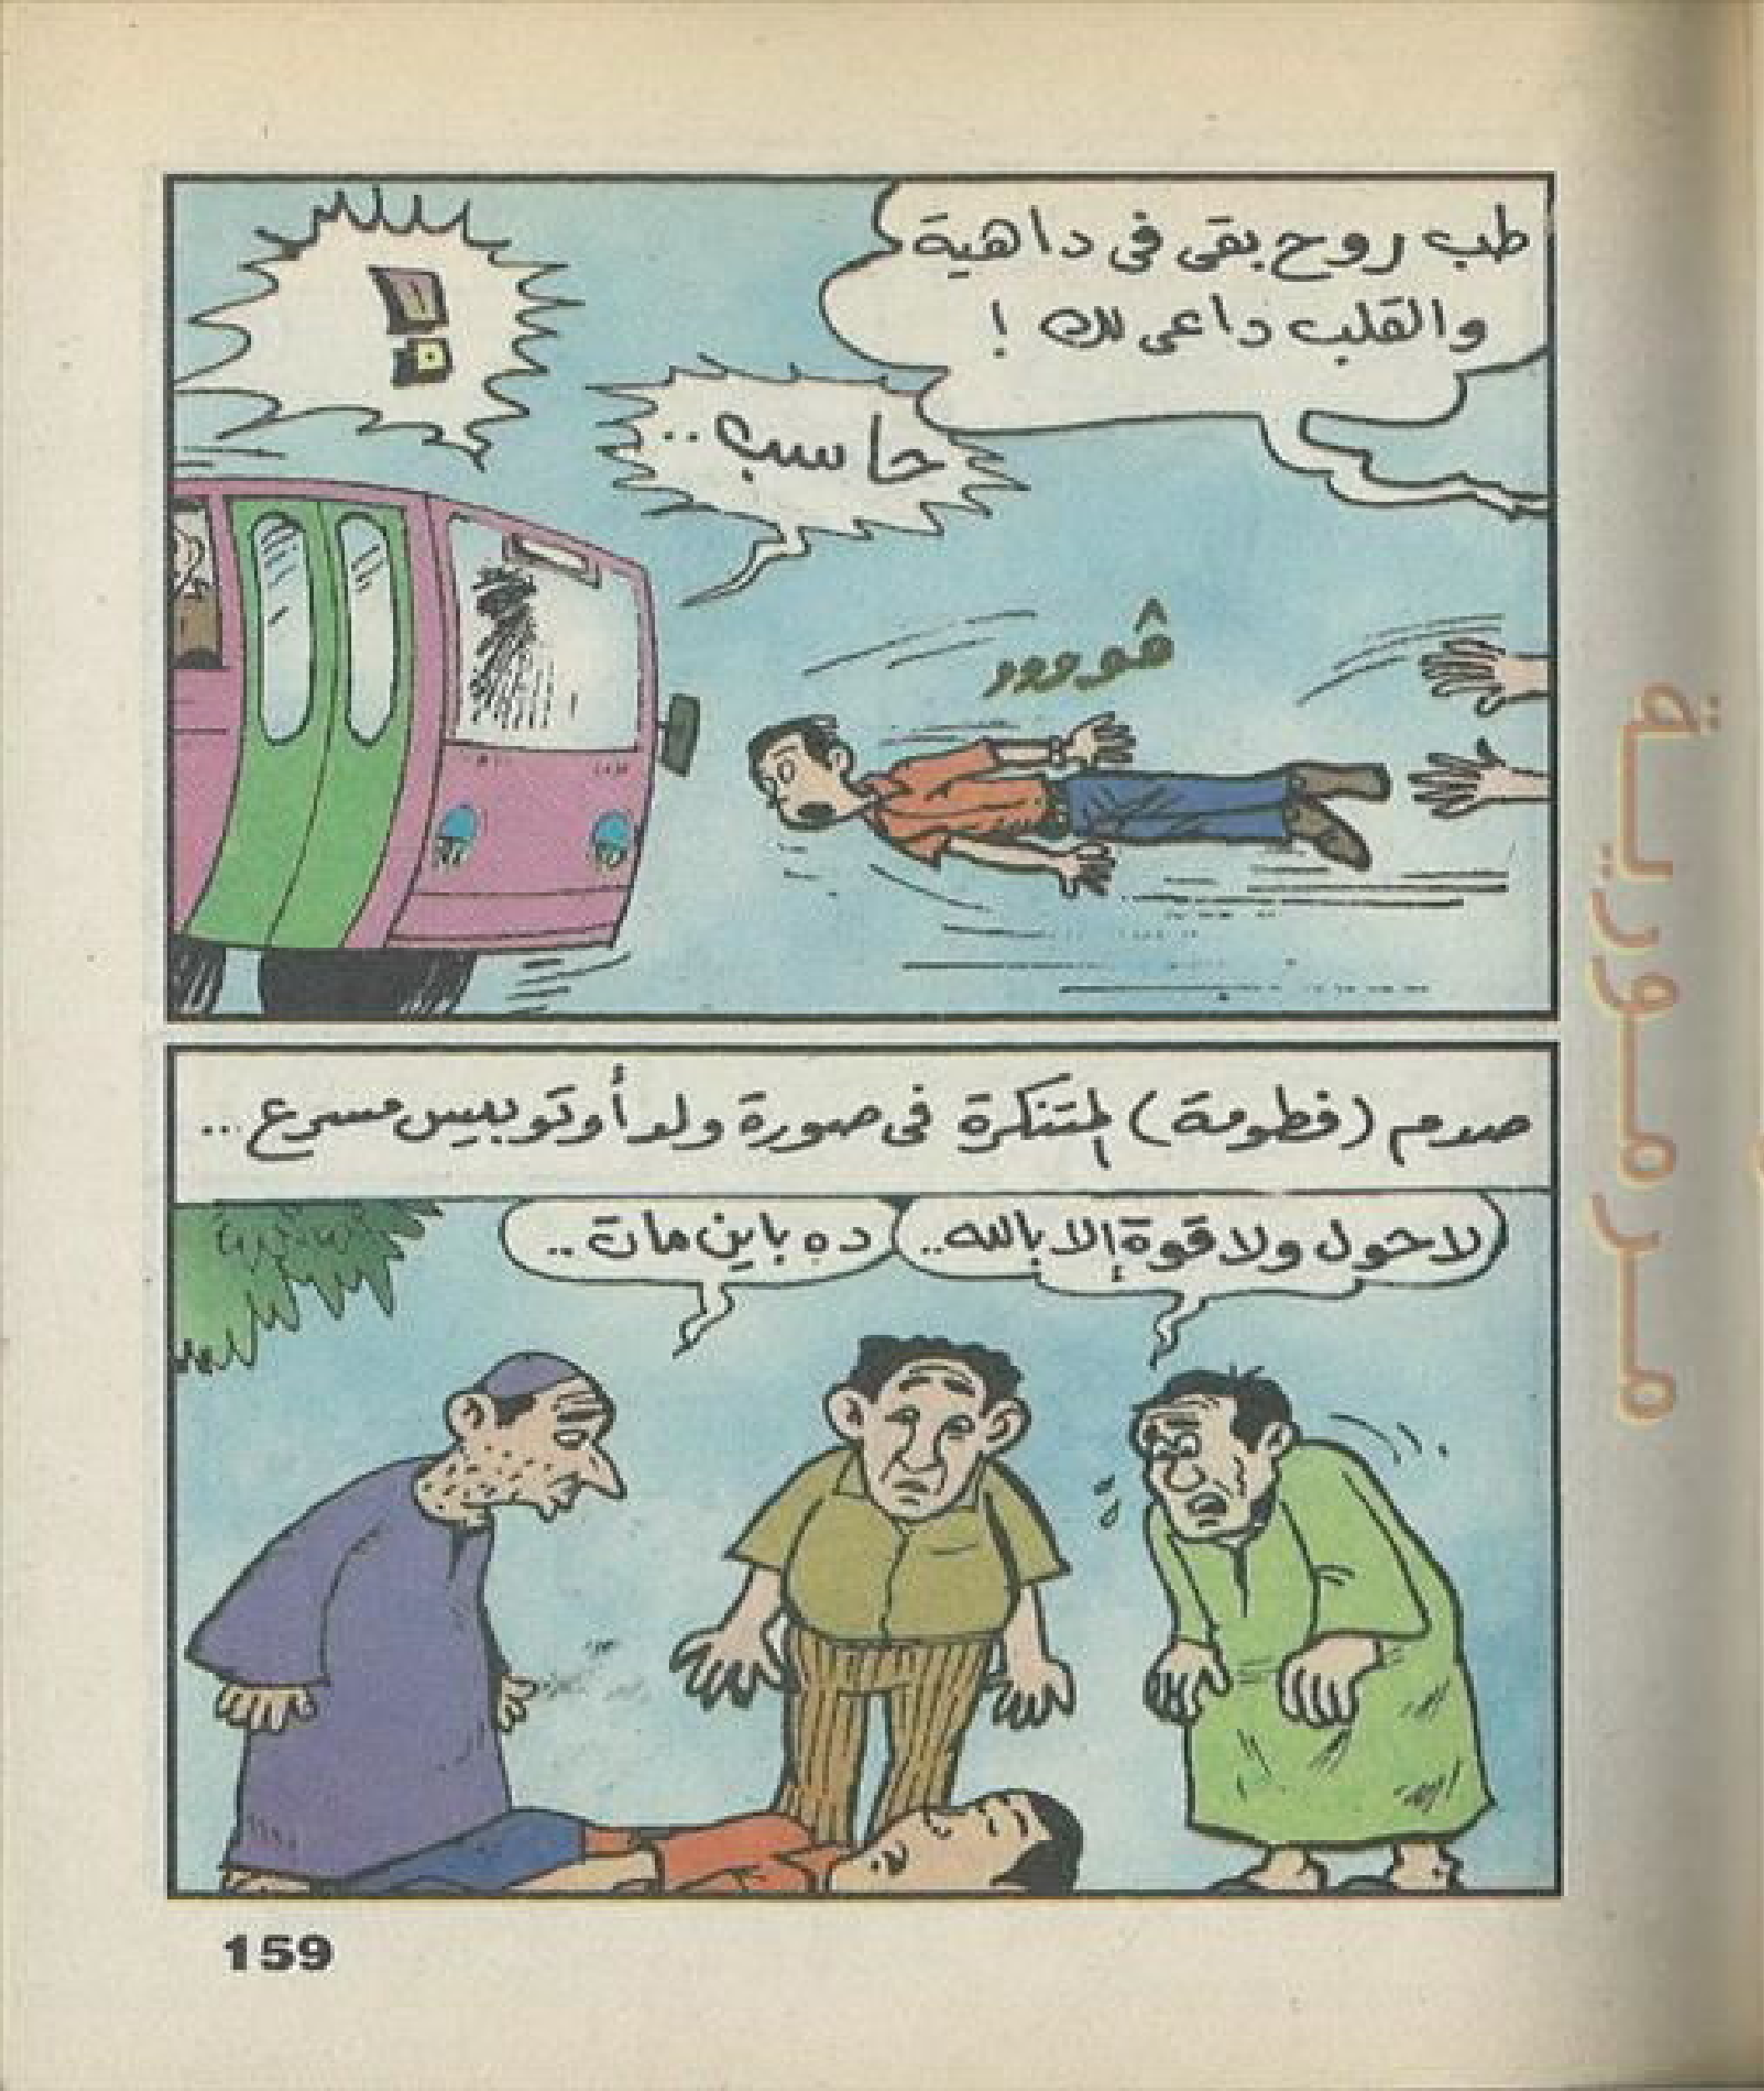 طب روح بقى فى داهية
والقلب داعى لك !
حاسب ..
!
ڤووووو
صدم (فطومة) المتنكرة فى صورة ولد أوتوبيس مسرع ...
لا حول ولا قوة إلا بالله ..
ده باين مات ..
159
مرمورية